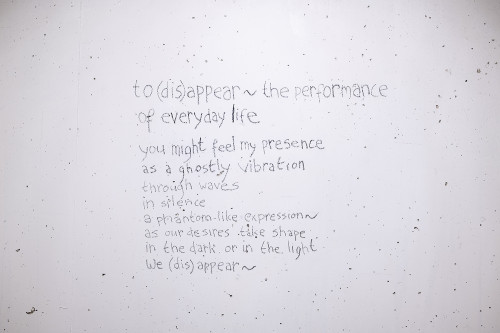 to (dis)appear ~ the performance
of everyday life
you might feel my presence
as a ghostly vibration
through waves
in silence
a phantom-like expression~
as our desires take shape
in the dark or in the light
we (dis)appear~